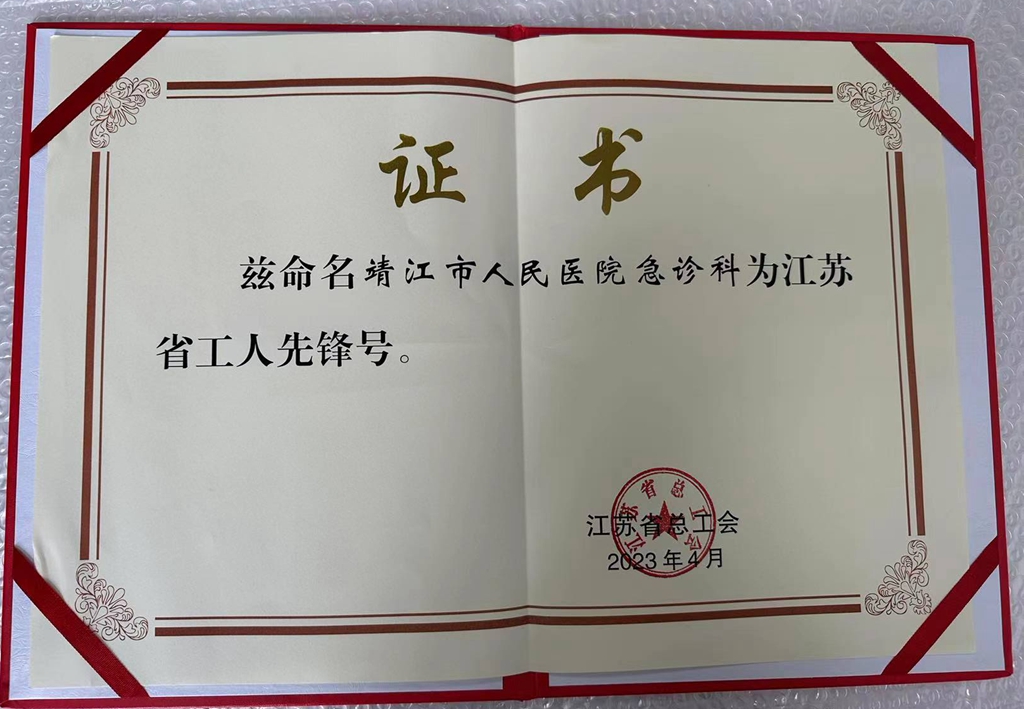 证 书
兹命名靖江市人民医院急诊科为江苏
省工人先锋号。
江苏省总工会
江苏省总工会
2023年4月